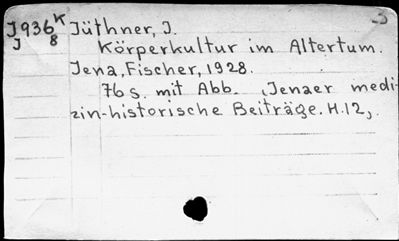 J936 K Jüthner, J.
J 8 Körperkultur im Altertum.
Jena, Fischer, 1928.
76 s. mit Abb. (Jenaer medi-
zin-historische Beiträge. H.12).